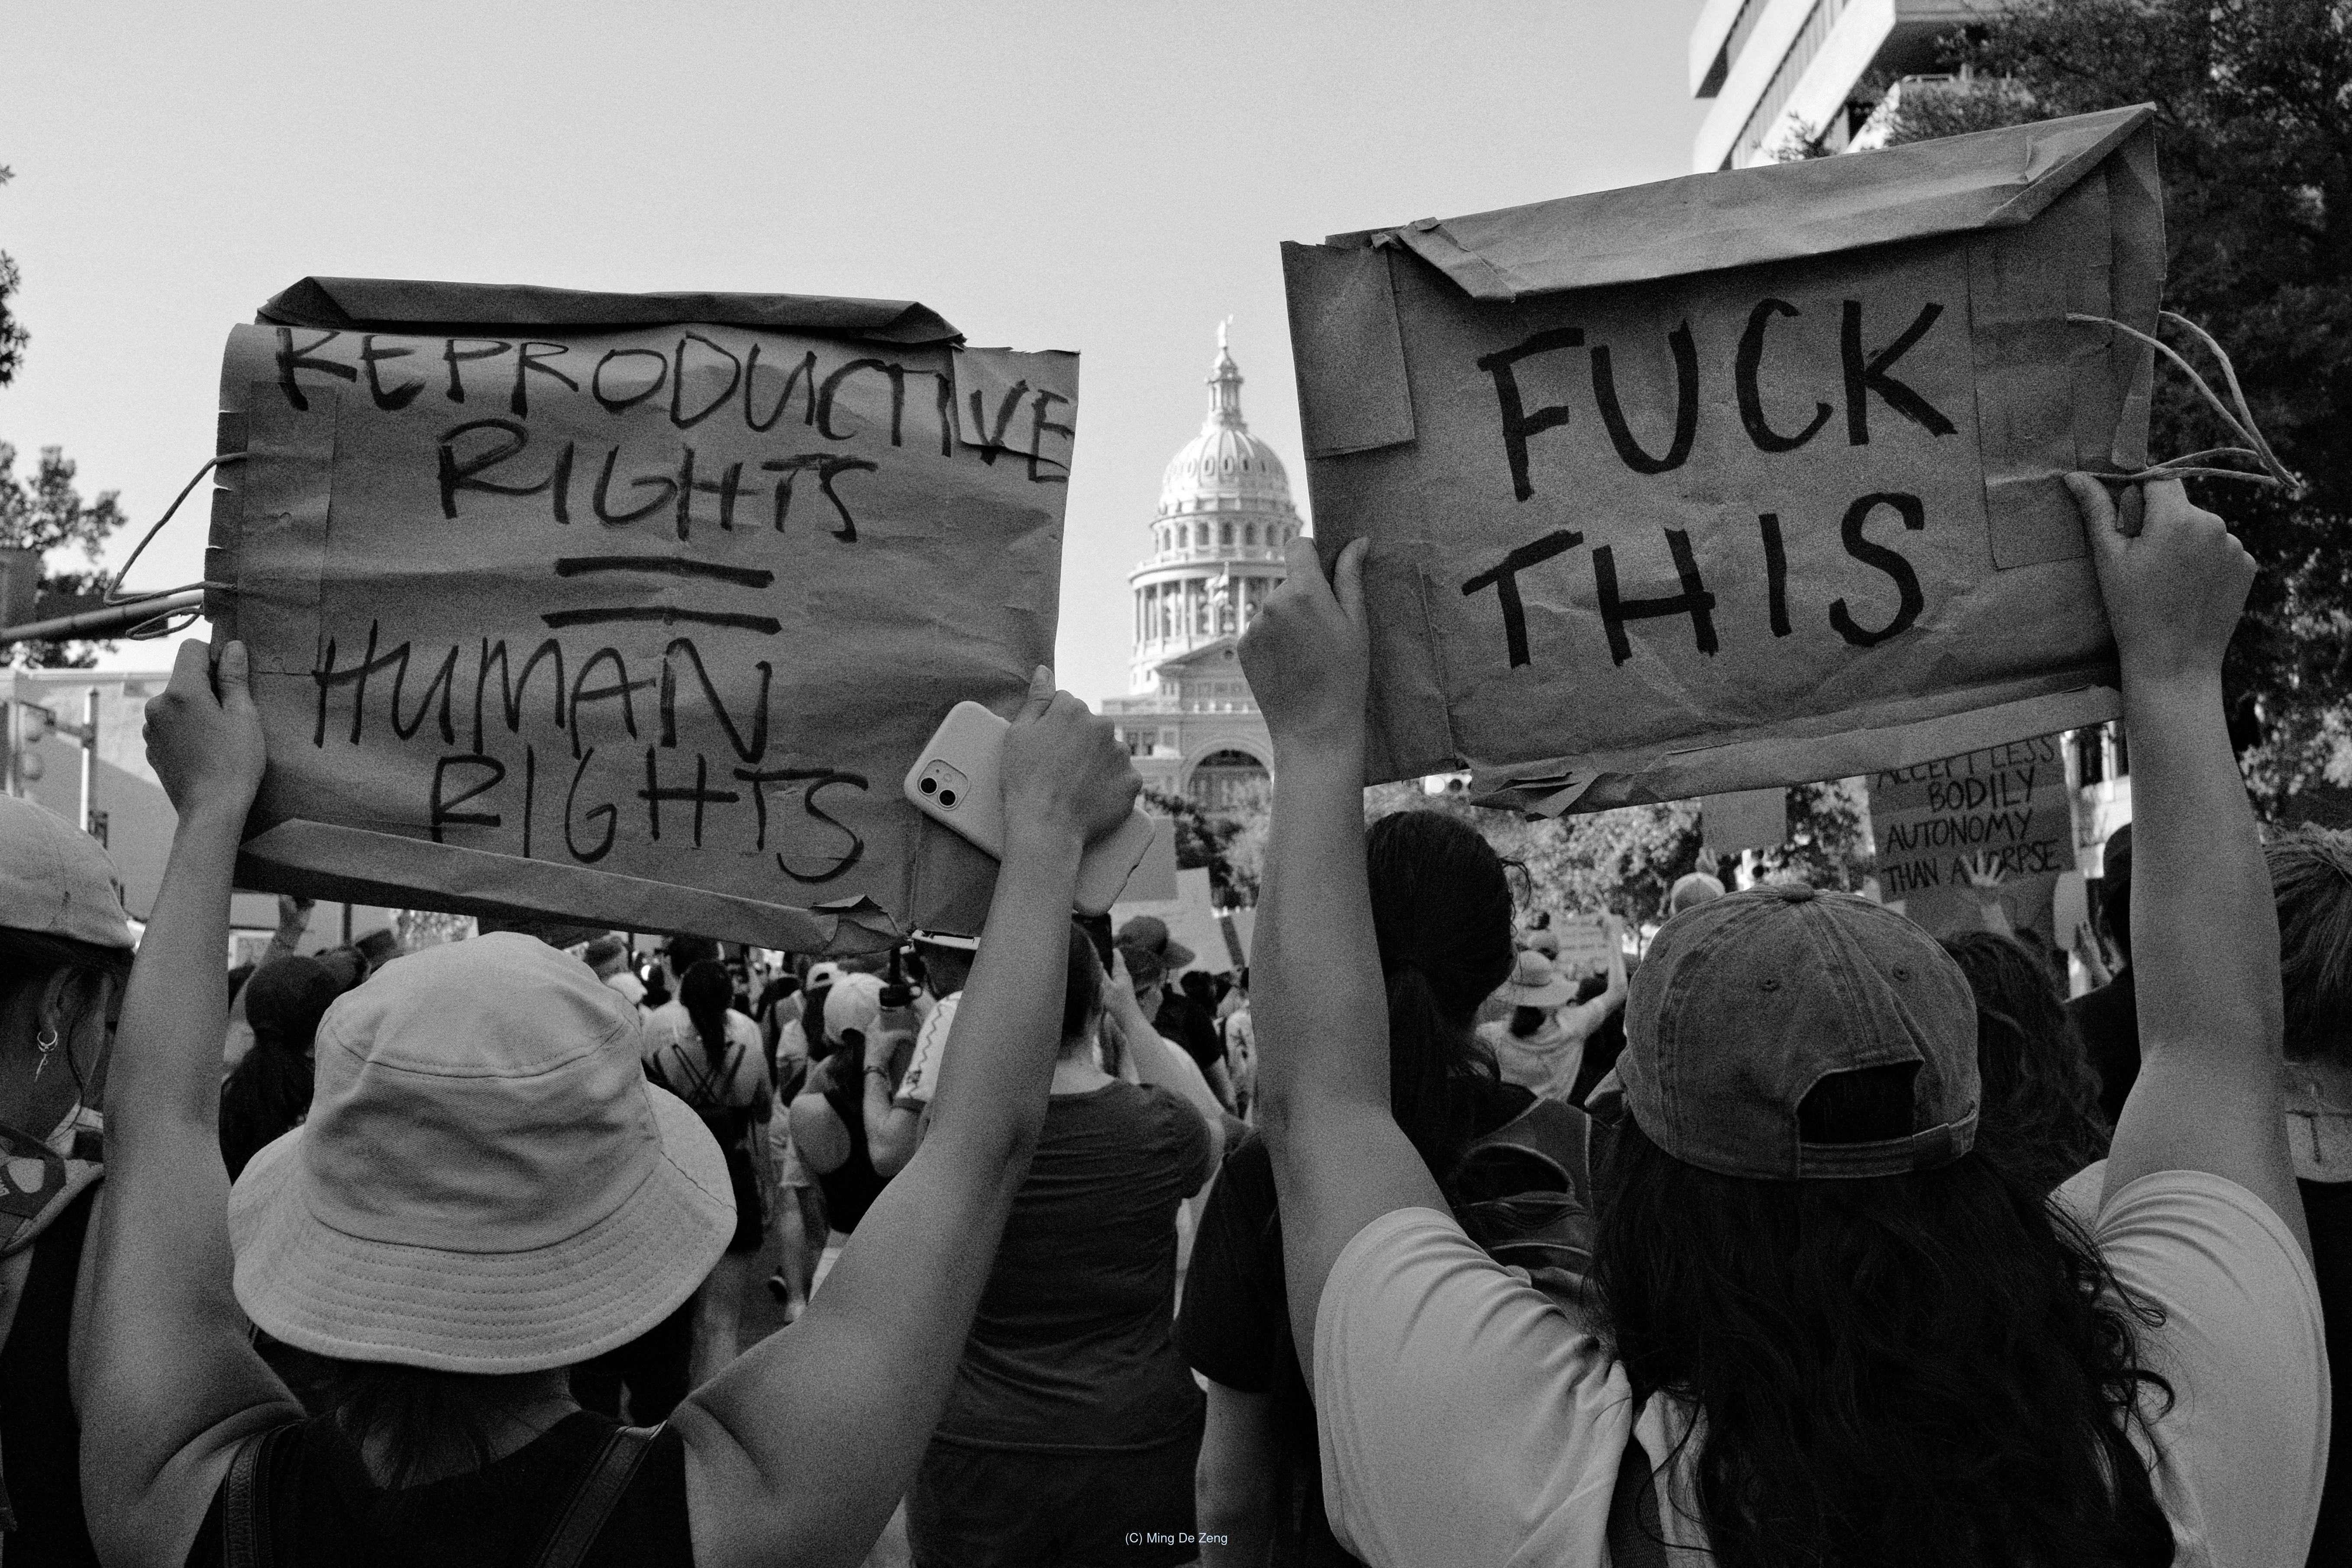 REPRODUCTIVE
RIGHTS
=
HUMAN
RIGHTS
FUCK
THIS
ACCEPT LESS
BODILY
AUTONOMY
THAN A CORPSE
(C) Ming De Zeng